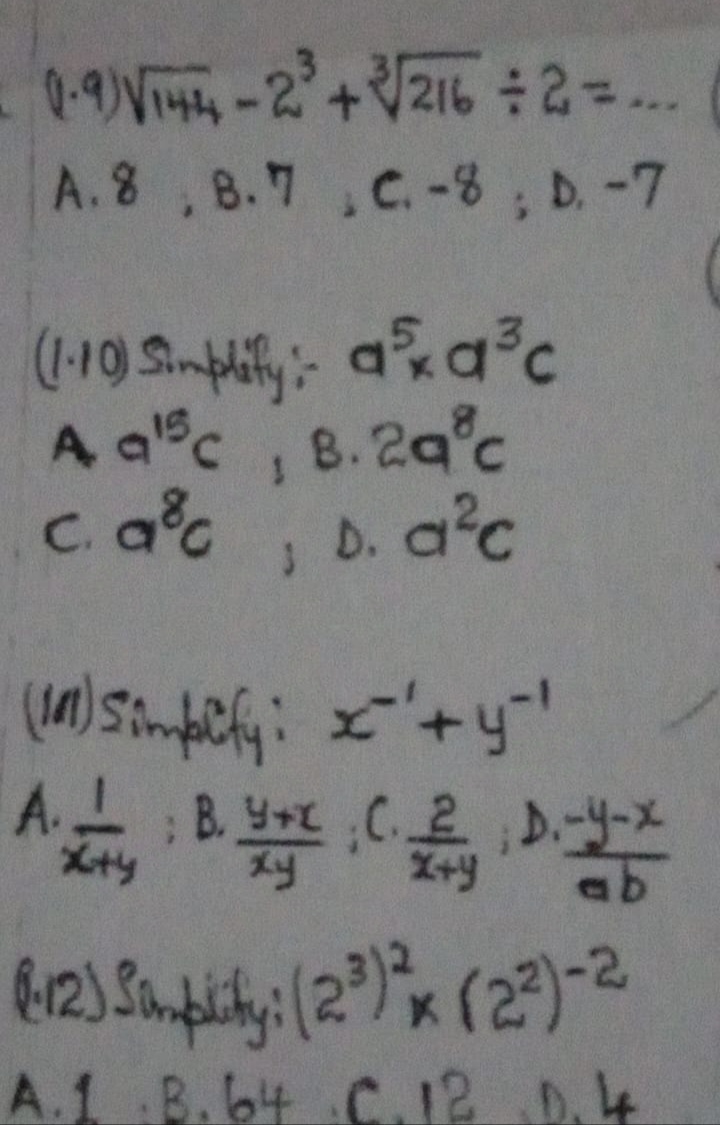 (1.9) √144 - 2³ + ∛216 ÷ 2 = ...
A. 8 ; B. 7 ; C. -8 ; D. -7
(1.10) Simplify:- a⁵ × a³c
A. a¹⁵c ; B. 2a⁸c
C. a⁸c ; D. a²c
(1.11) Simplify: x⁻¹ + y⁻¹
A. 1/(x+y) ; B. (y+x)/(xy) ; C. 2/(x+y) ; D. (-y-x)/(ab)
(1.12) Simplify: (2³)² × (2²)⁻²
A. 1 B. 64 C. 12 D. 4